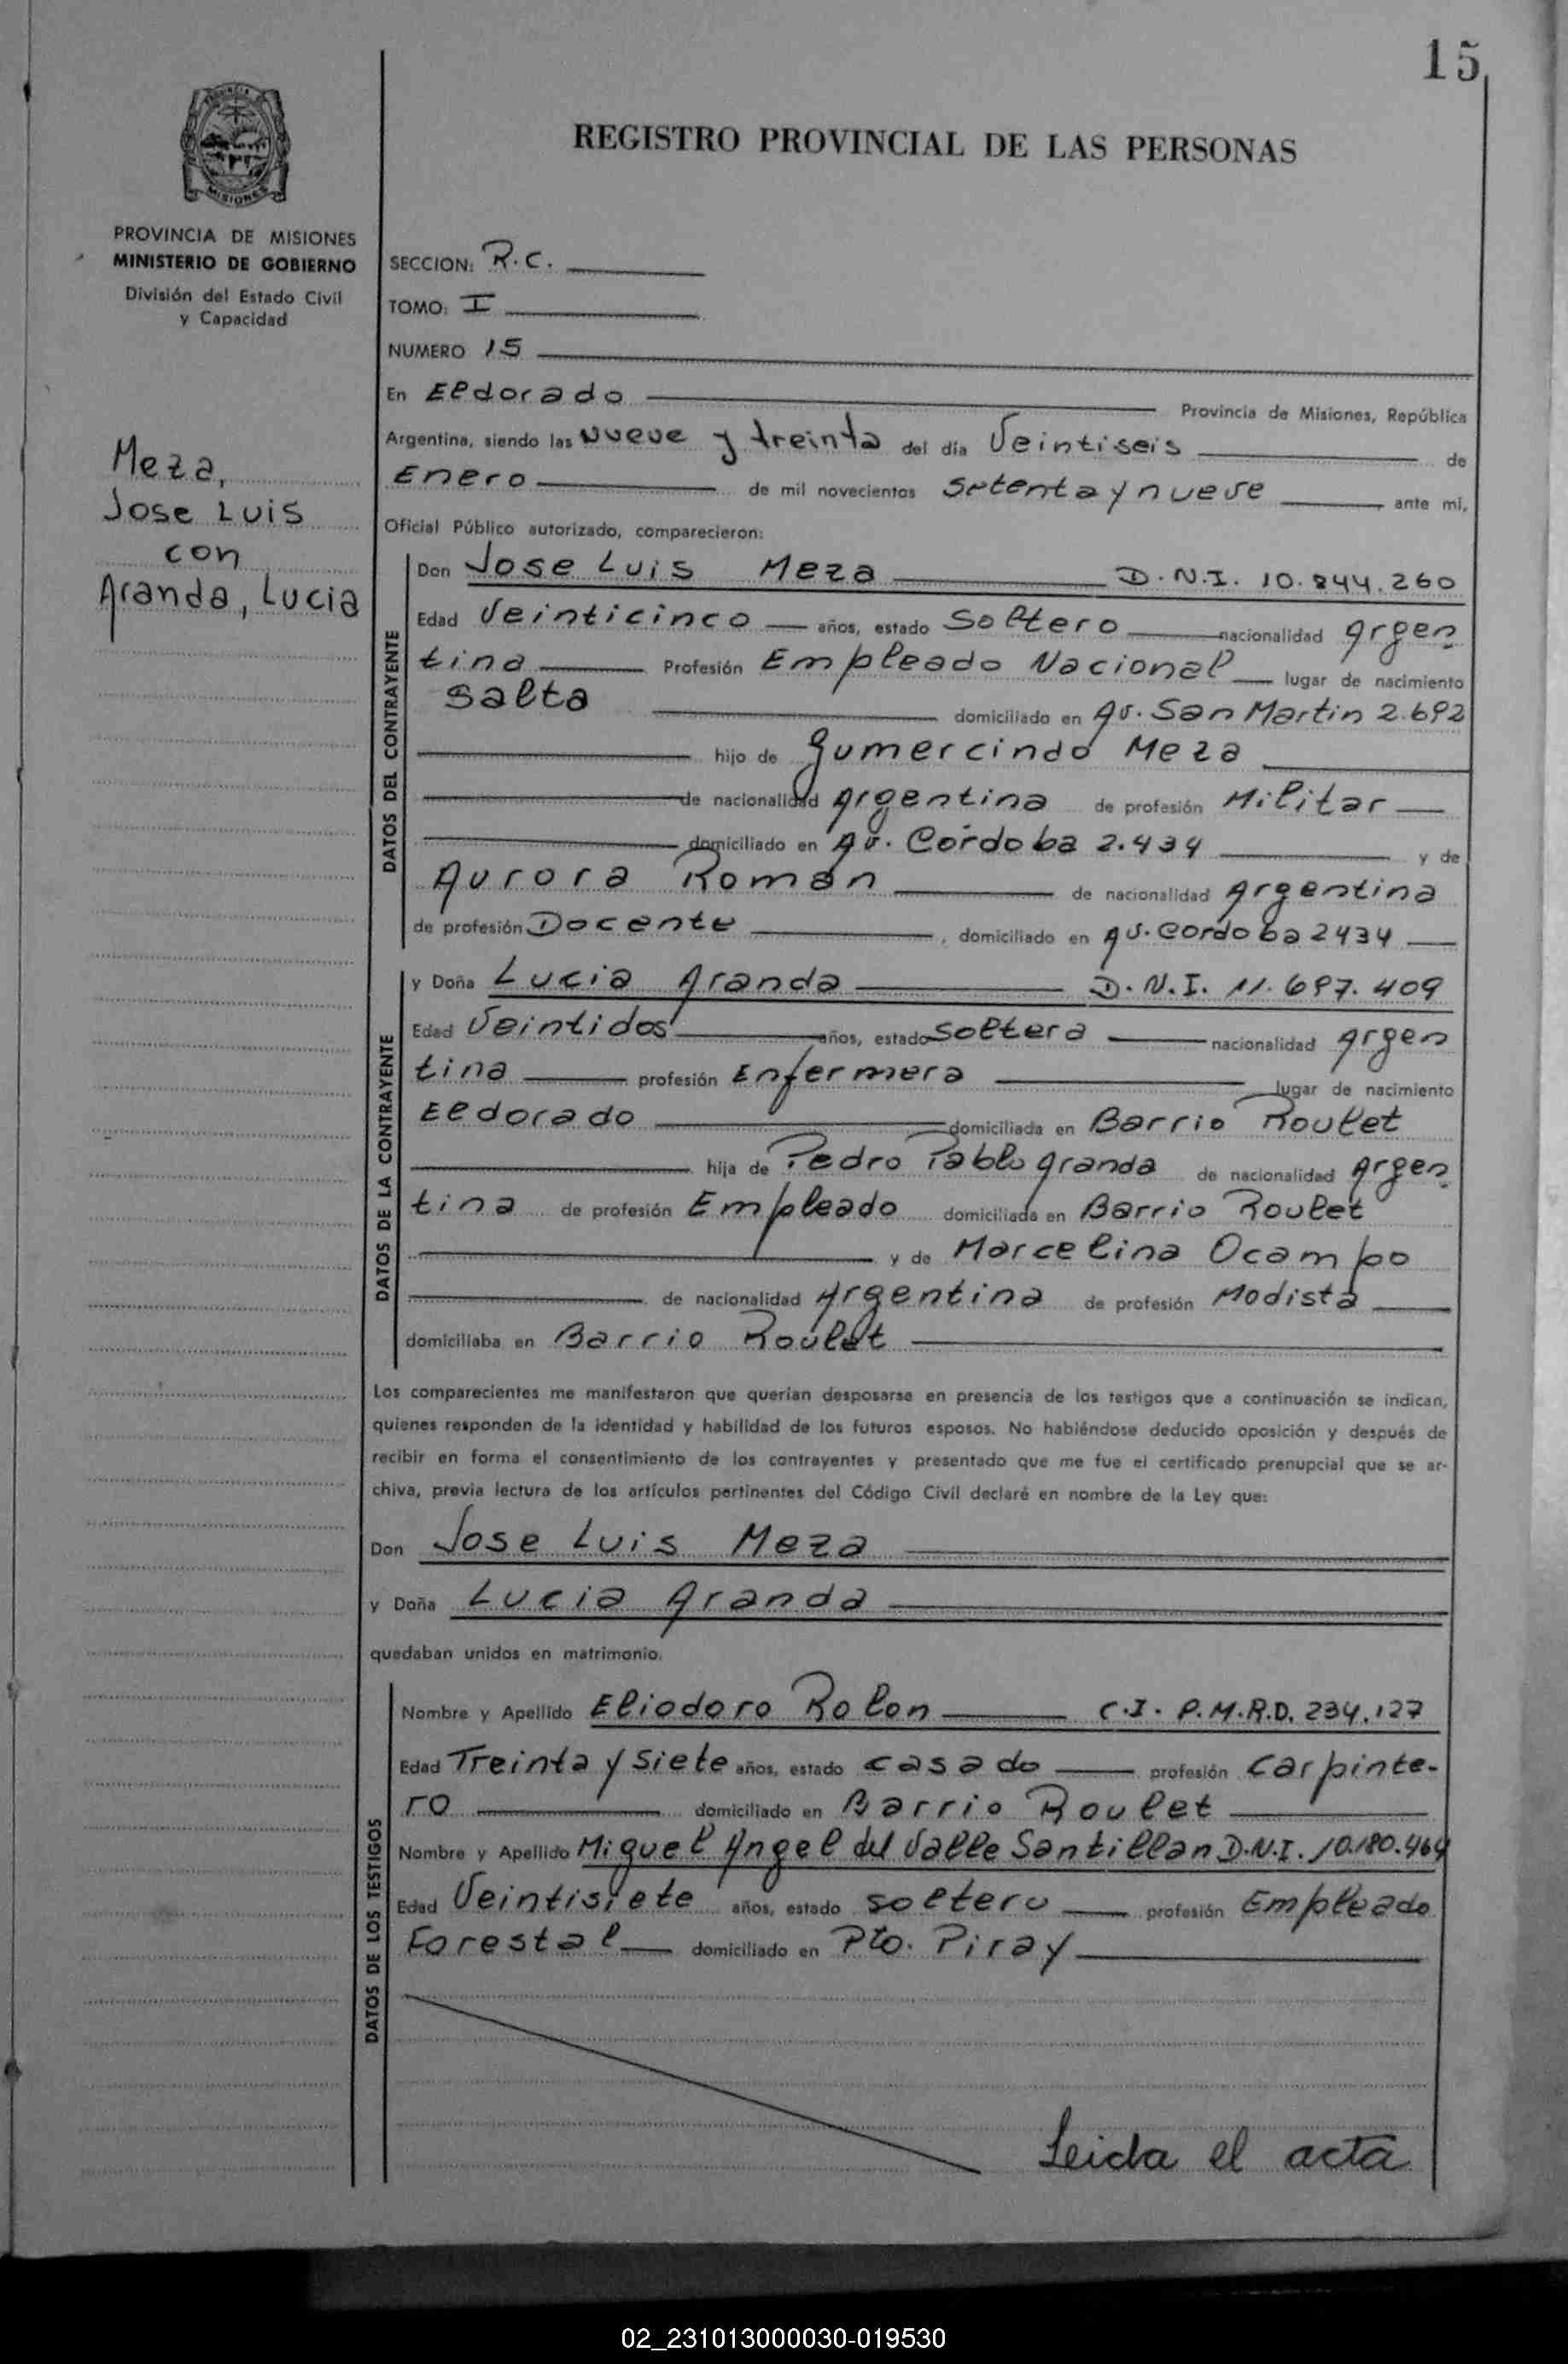 15
REGISTRO PROVINCIAL DE LAS PERSONAS
PROVINCIA
MISIONES
PROVINCIA DE MISIONES
MINISTERIO DE GOBIERNO
División del Estado Civil
y Capacidad
Meza,
Jose Luis
con
Aranda, Lucia
SECCION: R.C.
TOMO: I
NUMERO 15
En Eldorado Provincia de Misiones, República
Argentina, siendo las nueve y treinta del día Veintiseis de
Enero de mil novecientos setenta y nueve ante mi,
Oficial Público autorizado, comparecieron:
DATOS DEL CONTRAYENTE
Don Jose Luis Meza D.N.I. 10.844.260
Edad Veinticinco años, estado Soltero nacionalidad Argen
tina Profesión Empleado Nacional lugar de nacimiento
Salta domiciliado en Av. San Martin 2.692
hijo de Gumercindo Meza
de nacionalidad Argentina de profesión Militar
domiciliado en Av. Córdoba 2.434 y de
Aurora Román de nacionalidad Argentina
de profesión Docente, domiciliado en Av. Cordoba 2434
DATOS DE LA CONTRAYENTE
y Doña Lucia Aranda D.N.I. 11.697.409
Edad Veintidos años, estado Soltera nacionalidad Argen
tina profesión Enfermera lugar de nacimiento
Eldorado domiciliada en Barrio Roulet
hija de Pedro Pablo Aranda de nacionalidad Argen
tina de profesión Empleado domiciliada en Barrio Roulet
y de Marcelina Ocampo
de nacionalidad Argentina de profesión Modista
domiciliaba en Barrio Roulet
Los comparecientes me manifestaron que querían desposarse en presencia de los testigos que a continuación se indican,
quienes responden de la identidad y habilidad de los futuros esposos. No habiéndose deducido oposición y después de
recibir en forma el consentimiento de los contrayentes y presentado que me fue el certificado prenupcial que se ar-
chiva, previa lectura de los artículos pertinentes del Código Civil declaré en nombre de la Ley que:
Don Jose Luis Meza
y Doña Lucia Aranda
quedaban unidos en matrimonio.
DATOS DE LOS TESTIGOS
Nombre y Apellido Eliodoro Rolon C.I. P.M.R.D. 234.127
Edad Treinta y Siete años, estado casado profesión Carpinte-
ro domiciliado en Barrio Roulet
Nombre y Apellido Miguel Angel del Valle Santillan D.N.I. 10.180.464
Edad Veintisiete años, estado soltero profesión Empleado
Forestal domiciliado en Pto. Piray
Leida el acta
02_231013000030-019530